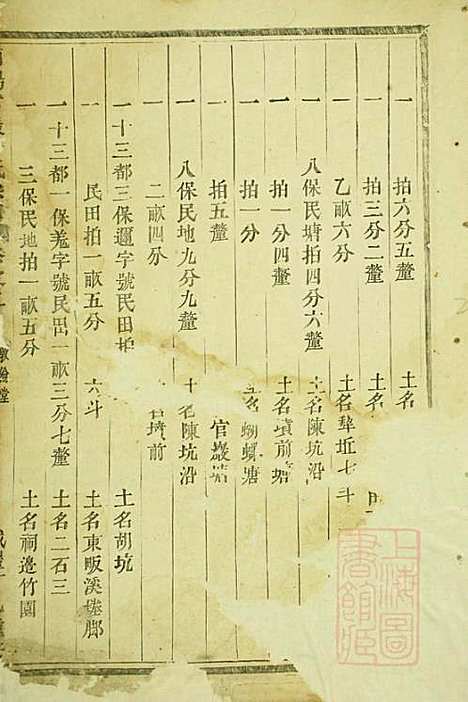 一 拍六分五釐 土名
一 拍三分二釐 土名
一 乙畝六分 土名 近七斗
一 八保民塘拍四分六釐 土名陳坑沿
一 拍一分四釐 土名墳前塘
一 拍一分 土名蝴蟥塘
一 拍五釐 官巖塘
一 八保民地九分九釐 名陳坑沿
一 二畝四分 前
一 十三都三保邇字號民田拍 土名胡坑
民田拍一畝五分 六斗 土名東畈溪塍腳
一 十三都一保羗字號民田一畝三分七釐 土名二石三
一 三保民地拍一畝五分 土名祠邉竹園
上海圖書館藏